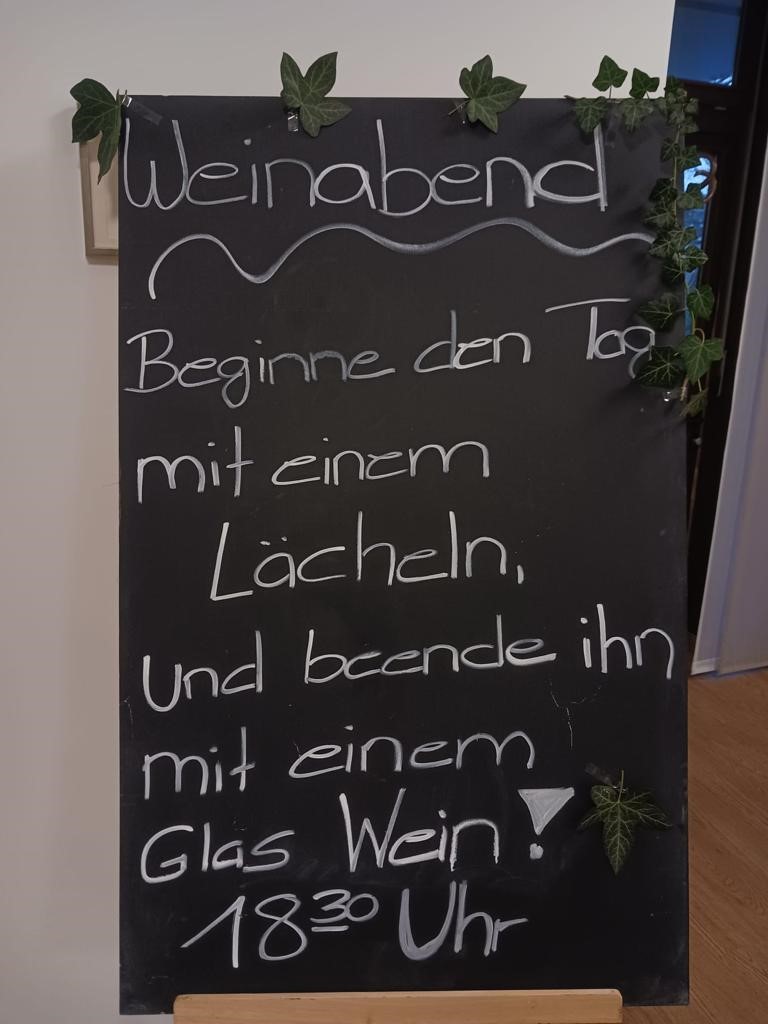 Weinabend
Beginne den Tag
mit einem
Lächeln,
und beende ihn
mit einem
Glas Wein!
18³⁰ Uhr